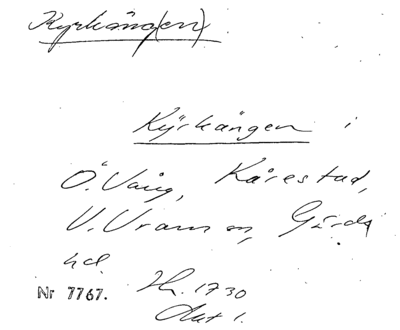 Kyrkäng(en)
Kyrkängen i
Ö. Vång, Kårestad,
V. Vram sn, Gärds
hd.
Nr 7767. Hr. 1730
Akt 1.